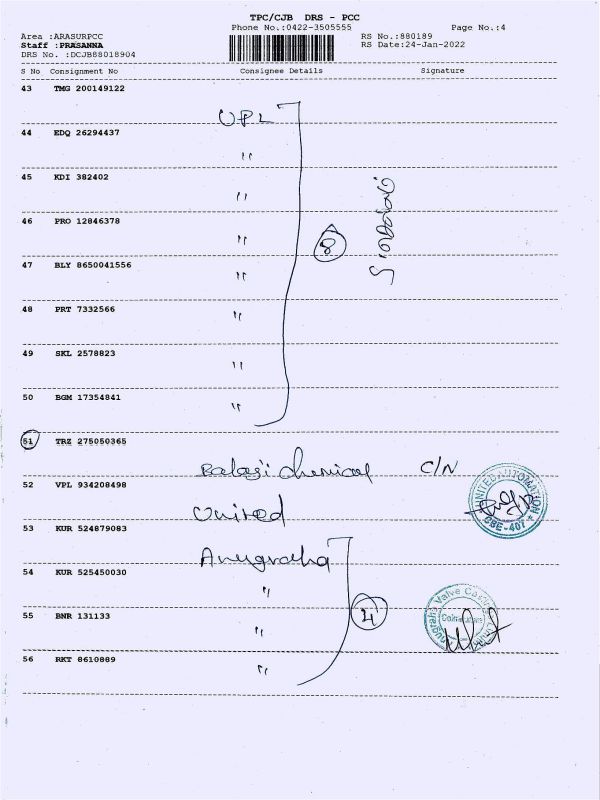 TPC/CJB DRS - PCC
Phone No.:0422-3505555 Page No.:4
Area :ARASURPCC RS No.:880189
Staff :PRASANNA RS Date:24-Jan-2022
DRS No. :DCJB88018904
S No Consignment No Consignee Details Signature
43 TMG 200149122
UPL
44 EDQ 26294437
"
45 KDI 382402
"
46 PRO 12846378
" 8
47 BLY 8650041556
"
48 PRT 7332566
"
49 SKL 2578823
"
50 BGM 17354841
"
51 TRZ 275050365
Balagi chemical C/N
52 VPL 934208498
United
UNITED AUTOMATION
CBE-407
53 KUR 524879083
Anugraha
54 KUR 525450030
"
55 BNR 131133
" 4
Valve
Coimbatore
56 RKT 8610889
"